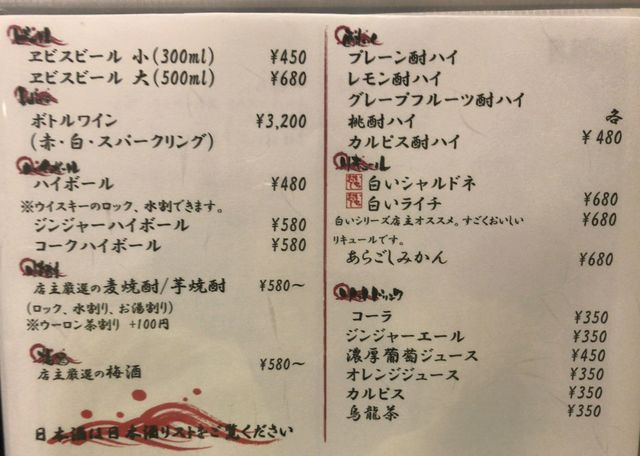 ビール
ヱビスビール 小(300ml) ¥450
ヱビスビール 大(500ml) ¥680
ボトルワイン ¥3,200
(赤・白・スパークリング)
ハイボール
ハイボール ¥480
※ウイスキーのロック、水割できます。
ジンジャーハイボール ¥580
コークハイボール ¥580
店主厳選の麦焼酎/芋焼酎 ¥580～
(ロック、水割り、お湯割り)
※ウーロン茶割り +100円
店主厳選の梅酒 ¥580～
日本酒は日本酒リストをご覧ください
プレーン酎ハイ
レモン酎ハイ
グレープフルーツ酎ハイ
桃酎ハイ 各
カルピス酎ハイ ¥480
リキュール
白いシャルドネ
白いライチ ¥680
白いシリーズ店主オススメ。すごくおいしい ¥680
リキュールです。
あらごしみかん ¥680
コーラ ¥350
ジンジャーエール ¥350
濃厚葡萄ジュース ¥450
オレンジジュース ¥350
カルピス ¥350
烏龍茶 ¥350